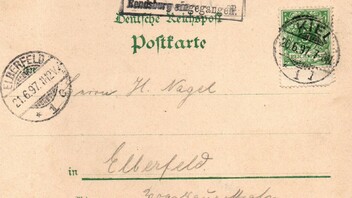 Rendsburg eingegangen.
Deutsche Reichspost
Postkarte
KIEL
20.6.97.7-
1 1
ELBERFELD
21.6.97.11-12V.
* 1 c
Herrn H. Nagel
in Elberfeld